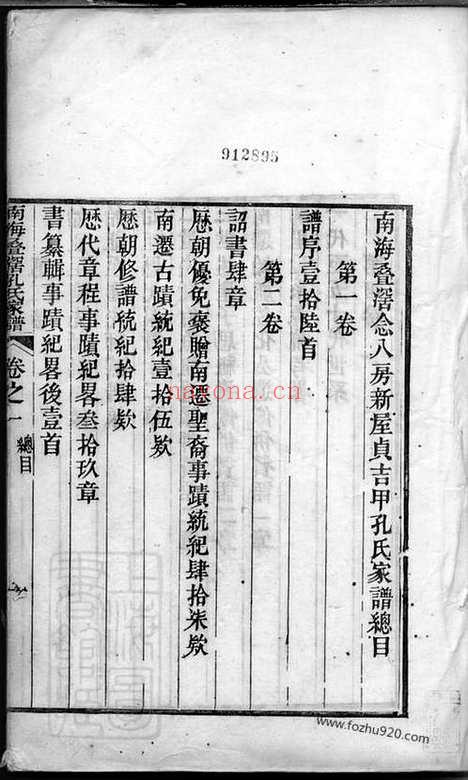 912895
南海疊滘念八房新屋貞吉甲孔氏家譜總目
第一卷
譜序壹拾陸首
第二卷
詔書肆章
歷朝優免褒贈南遷聖裔事蹟統紀肆拾柒欵
南遷古蹟統紀壹拾伍欵
歷朝修譜統紀拾肆欵
歷代章程事蹟紀畧叁拾玖章
書纂輯事蹟紀畧後壹首
南海疊滘孔氏家譜
卷之一
總目
nayona.cn
www.fozhu920.com